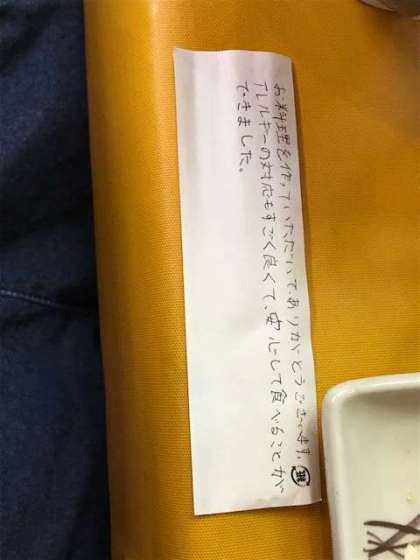 お料理を作っていただいて、ありがとうございます。
アレルギーの対応もすごく良くて、安心して食べることが
できました。